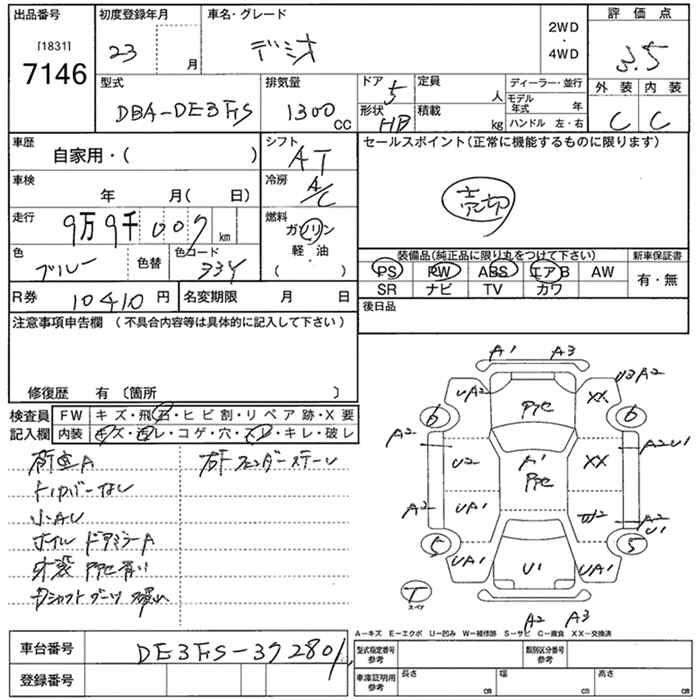 出品番号
[1831]
7146
初度登録年月
23 月
車名・グレード
デミオ
2WD
・
4WD
評価点
3.5
外装 内装
C C
型式
DBA-DE3FS
排気量
1300 CC
ドア
5
形状
HB
定員
人
積載
kg
ディーラー・並行
モデル年式 年
ハンドル 左・右
車歴
自家用・( )
シフト
AT
車検
年 月( 日)
冷房
A/C
走行
9万9千007 km
燃料
ガソリン
軽・油
( )
色
ブルー
色替
色コード
33Y
R券 10410 円
名変期限 月 日
セールスポイント(正常に機能するものに限ります)
売切
装備品(純正品に限り丸をつけて下さい)
PS PW ABS エアB AW
SR ナビ TV カワ
新車保証書
有・無
後日品
注意事項申告欄 (不具合内容等は具体的に記入して下さい)
修復歴 有 〔箇所 〕
検査員記入欄
FW キズ・飛石・ヒビ割・リペア跡・X要
内装 キズ・汚レ・コゲ・穴・スレ・キレ・破レ
荷室A
トノカバーなし
小AU
ホイル ドアミラーA
右F フェンダーステー
A1 A3
UA2 PPC XX
A2
6 6
A2 A2U1
U2 A1 PPC XX
A2 UA1 W2 A2 U1
5 5
UA1 U1 UA1
T
スペア
A2 A3
A-キズ E-エクボ U-凹み W-補修跡 S-サビ C-腐食 XX-交換済
車台番号 DE3FS-392801
登録番号
型式指定番号
参考
類別区分番号
参考
車庫証明用
参考
長さ cm
幅 cm
高さ cm